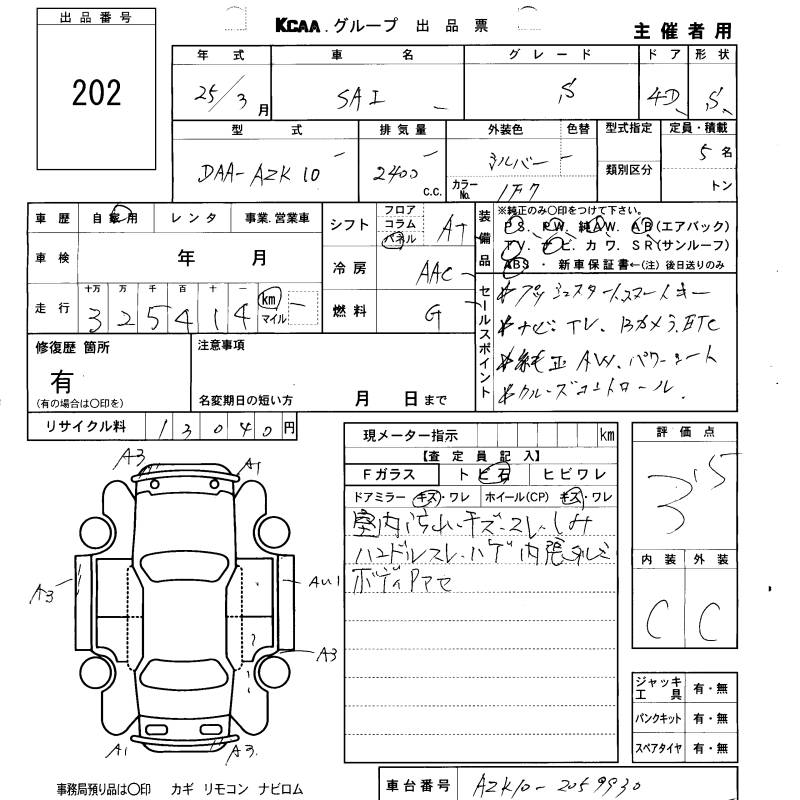 出品番号
202
KCAA.グループ 出品票
主催者用
年式 車名 グレード ドア 形状
25/3月 SAI S 4D S
型式 排気量 外装色 色替 型式指定 定員・積載
DAA-AZK10 2400 c.c. シルバー 類別区分 5名
カラーNo. 1F7 トン
車歴 自家用 レンタ 事業.営業車
車検 年 月
走行 十万 万 千 百 十 一
3 2 5 4 1 4 km マイル
シフト フロア コラム パネル AT
冷房 AAC
燃料 G
装備品
※純正のみ○印をつけて下さい。
PS. PW. 純AW. AB(エアバック)
TV. ナビ. カワ. SR(サンルーフ)
ABS ・ 新車保証書←(注)後日送りのみ
セールスポイント
*プッシュスタート.スマートキー
*ナビ、TV、Bカメラ、ETC
*純正AW、パワーシート
*クルーズコントロール.
修復歴 箇所
有
(有の場合は○印を)
注意事項
名変期日の短い方 月 日まで
リサイクル料 13040円
現メーター指示 km
【査定員記入】
Fガラス トビ石 ヒビワレ
ドアミラー キズ・ワレ ホイール(CP) キズ・ワレ
室内汚れ・キズ・スレ・しみ
ハンドルスレ・ハゲ 内張タルミ
ボディアセ
評価点
3.5
内装 外装
C C
A3 A1
A3 AU1
A3
A1 A3
ジャッキ工具 有・無
パンクキット 有・無
スペアタイヤ 有・無
事務局預り品は○印 カギ リモコン ナビロム
車台番号 AZK10-2059930